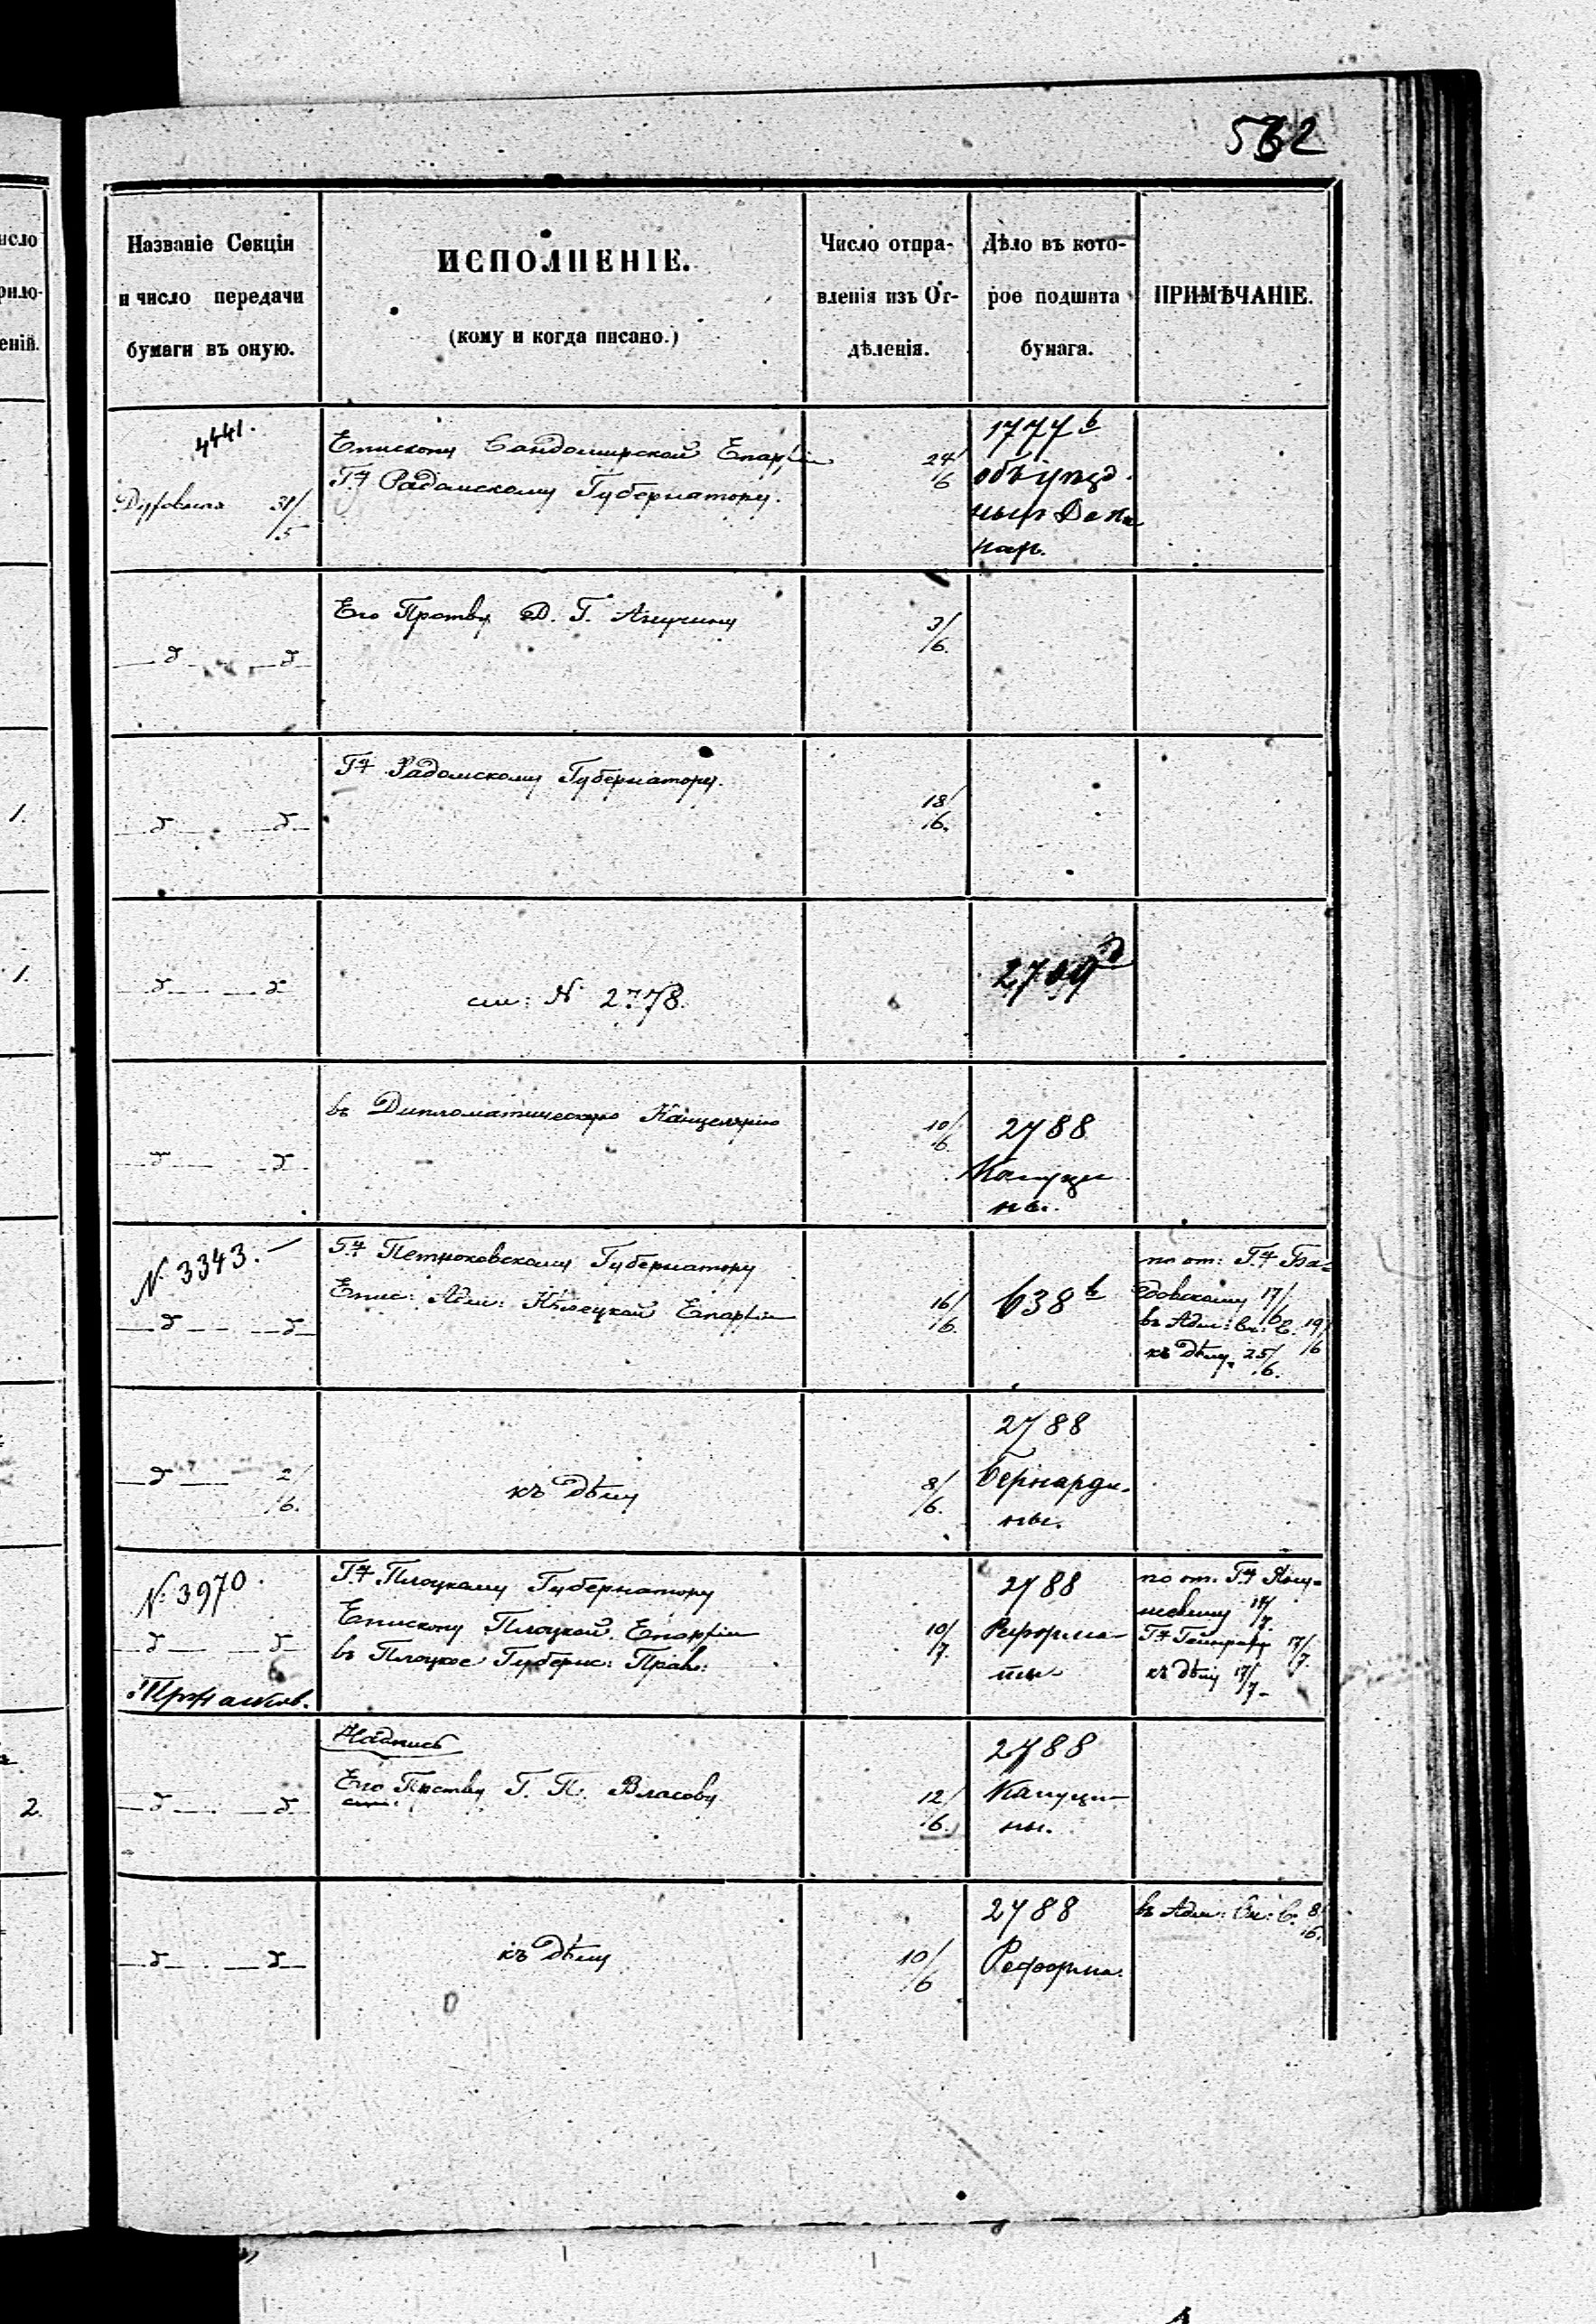 532
Названіе Секціи
и число передачи
бумаги въ оную.
ИСПОЛНЕНІЕ.
(кому и когда писано.)
Число отпра-
вленія изъ От-
дѣленія.
Дѣло въ кото-
рое подшита
бумага.
ПРИМѢЧАНІЕ.
4441.
Духовная 31/5
Епископу Сандомирской Епархіи
Гну Радомскому Губернатору.
24/6
1777 в
Его Прству Д. Г. Анучину
3/6.
Гну Радомскому Губернатору.
18/6.
1.
1.
см: N 2778.
2709 д
въ Дипломатическую Канцелярію
10/6.
2788
Капуци
ны.
N 3343.
Гну Петроковскому Губернатору
Епис: Адми: Кѣлецкой Епархіи
16/6.
638 в
по от: Гну Ба-
довскому 17/6
въ Адм: 19/6
къ Дѣлу 25/6.
2/6.
къ Дѣлу
8/6.
2788
Бернарди-
ны.
N 3970.
Гну Плоцкому Губернатору
Епископу Плоцкой Епархіи
въ Плоцкое Губерн: Прав:
10/7.
2788
Реформа-
ты
по от. Гну
17/7.
Гну 17/7.
къ дѣлу 17/7
2.
Надпись
Его Прству Г. П. Власову
12/6.
2788
Капуци-
ны.
къ Дѣлу
10/6
2788
Реформа:
въ Адм: 8/6.